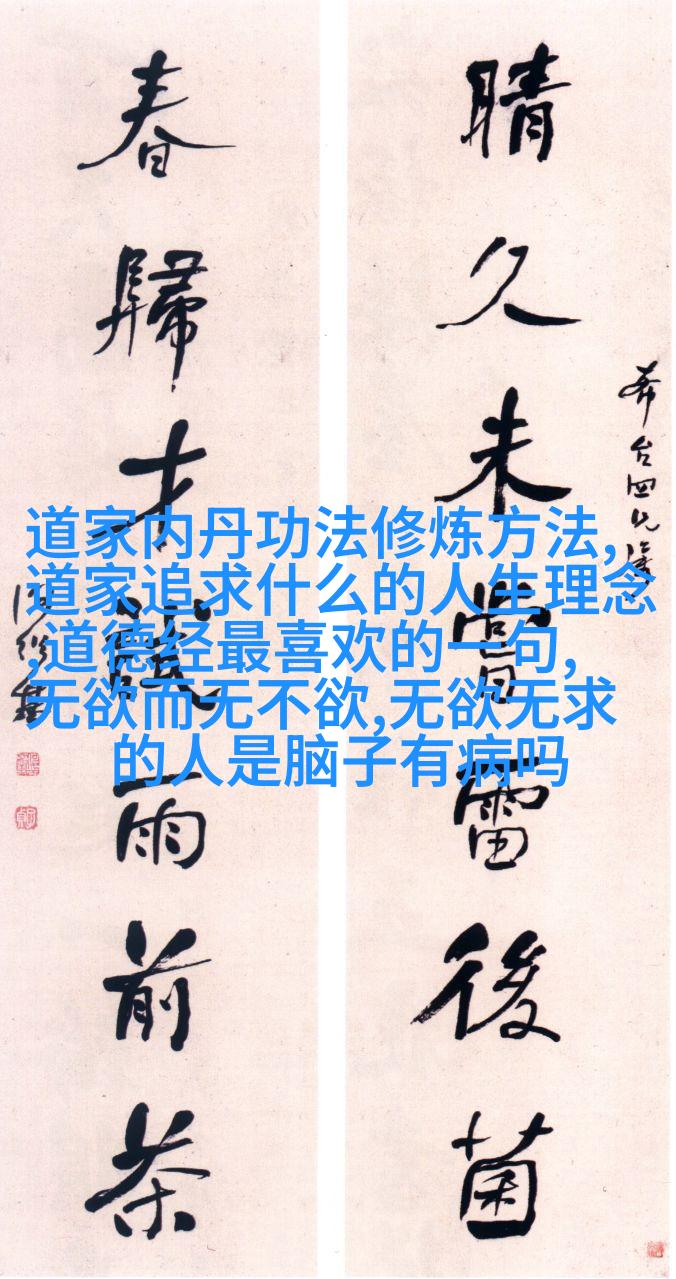 晴久未嘗雷後菌
春歸才識雨前茶
道家内丹功法修炼方法,
道家追求什么的人生理念
,道德经最喜欢的一句,
无欲而无不欲,无欲无求
的人是脑子有病吗